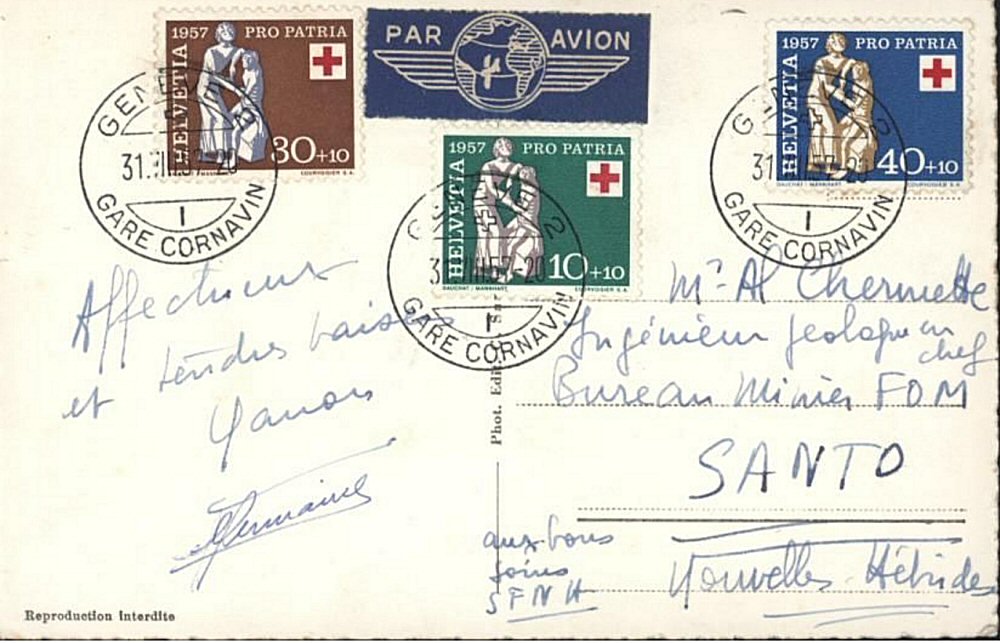 1957 PRO PATRIA
HELVETIA
30+10
COURVOISIER S.A.
PAR AVION
1957 PRO PATRIA
HELVETIA
40+10
DAUCHAT / MANNHART.
COURVOISIER S.A.
1957 PRO PATRIA
HELVETIA
10+10
DAUCHAT / MANNHART.
COURVOISIER S.A.
GENEVE 2
31.VIII.57-20
1
GARE CORNAVIN
GENEVE 2
31.VIII.57-20
1
GARE CORNAVIN
GENEVE 2
31.VIII.57-20
1
GARE CORNAVIN
Affectueux
et tendres baisers
Germaine
Phot. Edit.
Sur
Mr Al Chermette
Ingénieur géologue en
chef
Bureau Minier FOM
SANTO
Nouvelles Hébrides
aux bons
soins
SFNH
Reproduction Interdite